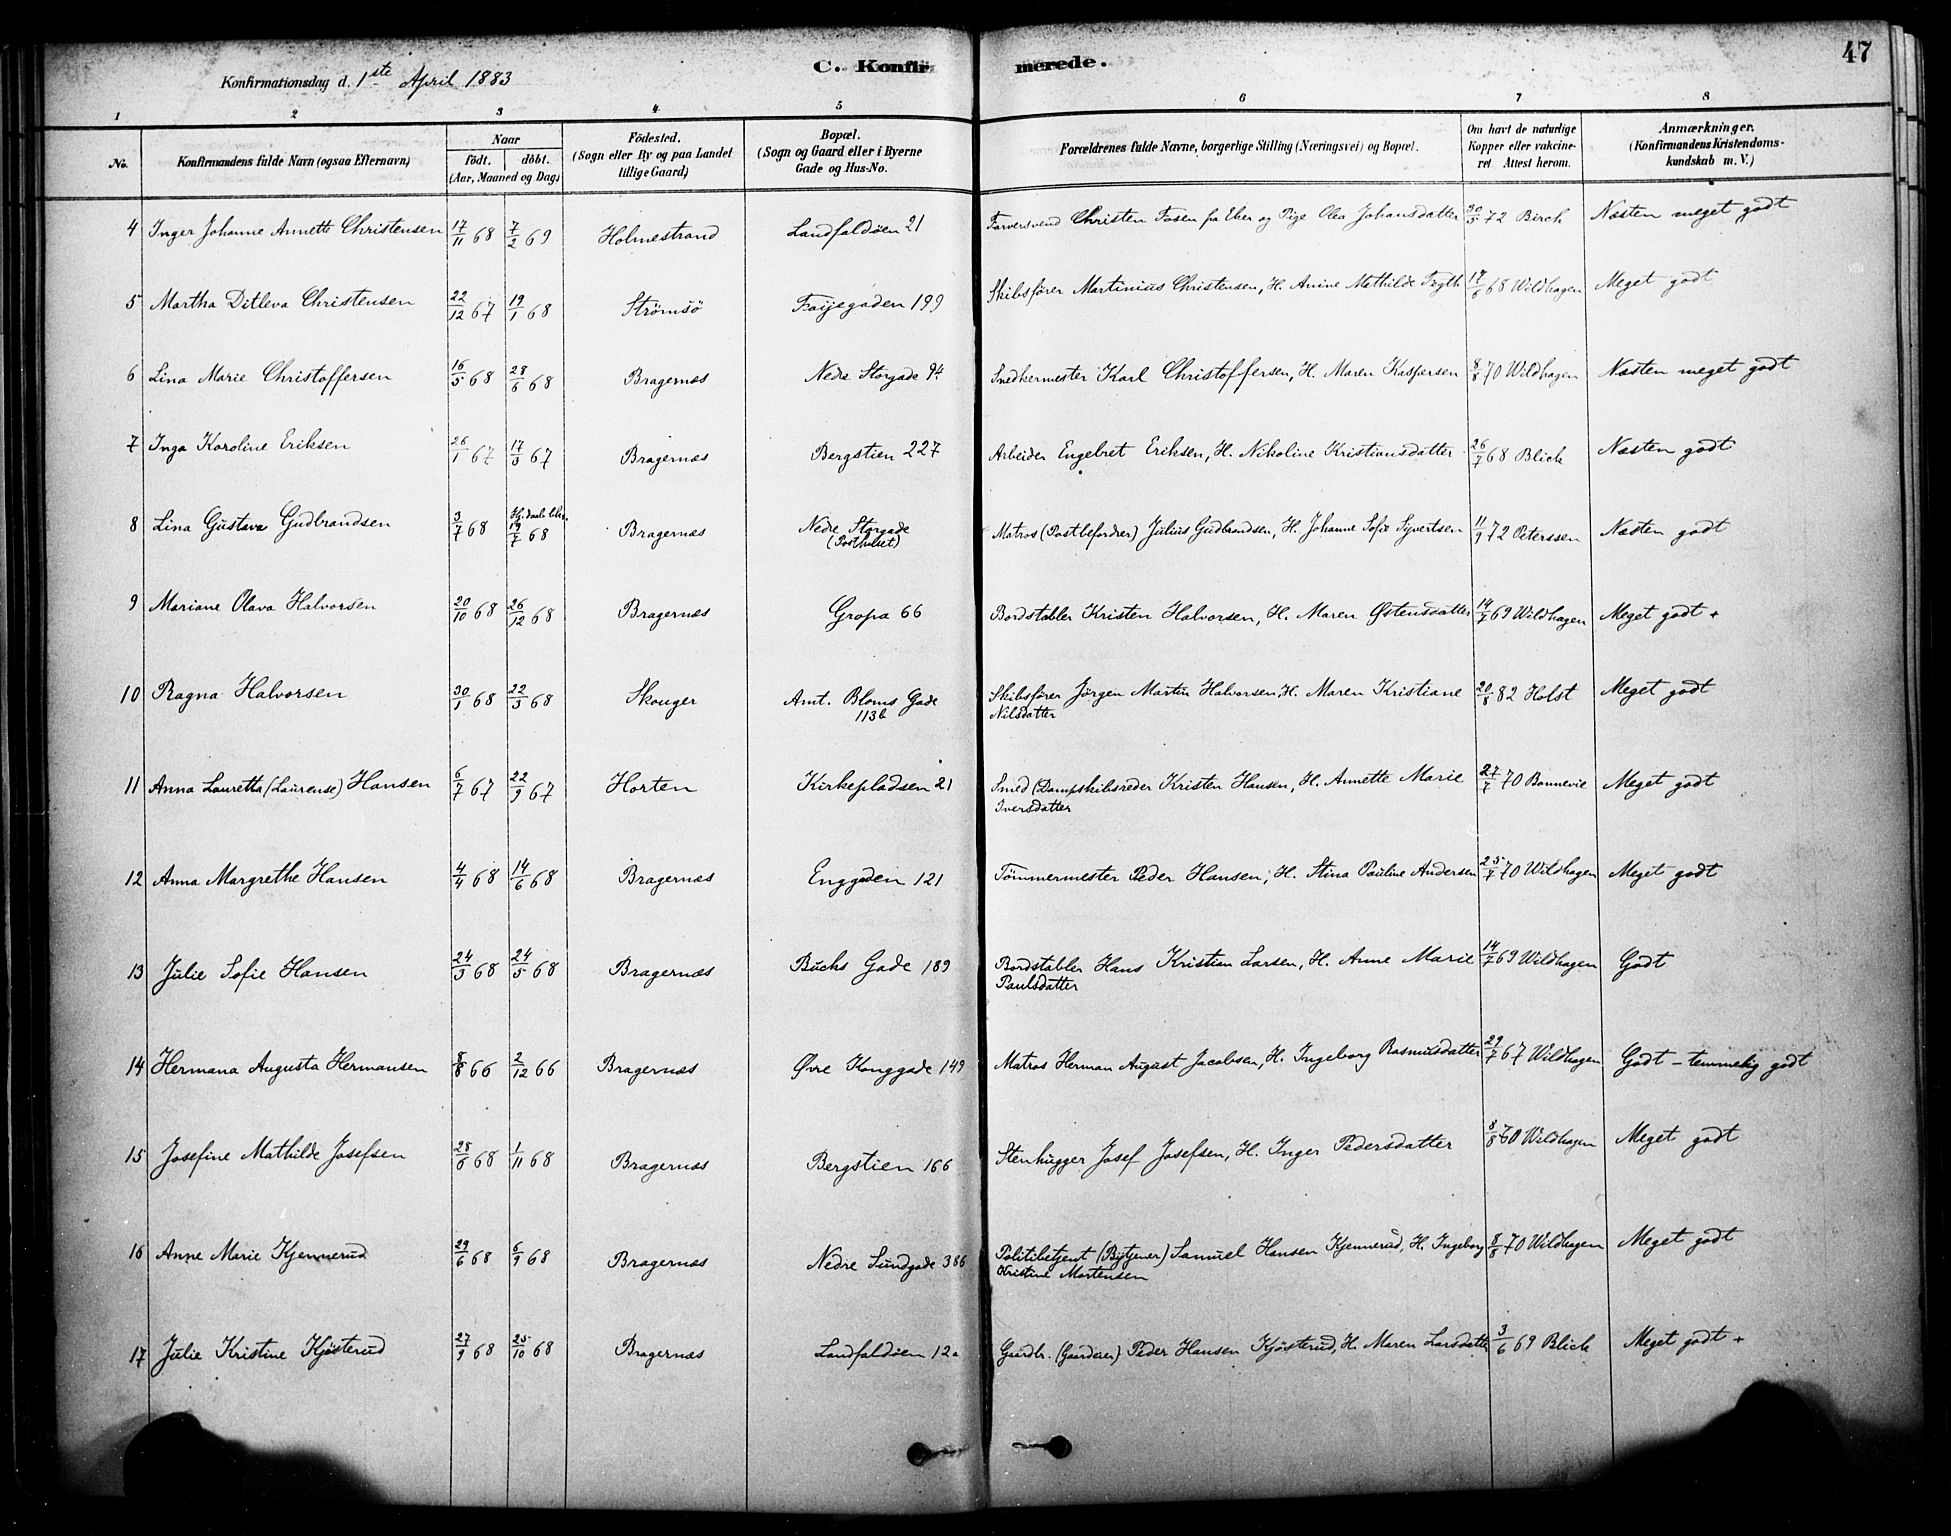 47
Konfirmationsdag d. 1ste April 1883
C. Konfirmerede.
1 2 3 4 5 6 7 8
No.
Konfirmandens fulde Navn (ogsaa Efternavn)
Naar
födt. döbt.
(Aar, Maaned og Dag)
Födested.
(Sogn eller By og paa Landet
tillige Gaard)
Bopæl.
(Sogn og Gaard eller i Byerne
Gade og Hus-No.
Forældrenes fulde Navne, borgerlige Stilling (Næringsvei) og Bopæl.
Om havt de naturlige
Kopper eller vakcine-
ret Attest herom.
Anmærkninger.
(Konfirmandens Kristendoms-
kundskab m. V.)
4 Inger Johanne Annette Christensen 17/11 68 7/2 69 Holmestrand Landfaldøen 21 Farversvend Christen Fosen fra Eker og Pige Olea Johansdatter 30/5 72 Birch Næsten meget godt
5 Martha Ditleva Christensen 22/12 67 19/1 68 Strömsö 199 Skibsförer Martinius Christensen, H. Anine Mathilde 17/6 68 Wildhagen Meget godt
6 Lina Marie Christoffersen 16/5 68 28/6 68 Bragernæs Nedre Storgade 94 Snedkermester Karl Christoffersen, H. Maren Kaspersen 8/8 70 Wildhagen Næsten meget godt
7 Inga Karoline Eriksen 26/1 67 17/3 67 Bragernæs Bergstien 227 Arbeider Engebret Eriksen, H. Nikoline Kristiansdatter 26/7 68 Blich Næsten godt
8 Lina Gustava Gudbrandsen 3/7 68 19/7 68 Bragernæs Nedre Storgade Matros (Postbefordrer) Julius Gudbrandsen, H. Johanne Sofie Syvertsen 11/9 72 Peterssen Næsten godt
(Posthuset)
9 Mariane Olava Halvorsen 20/10 68 26/12 68 Bragernæs Gropa 66 Bordstabler Kristen Halvorsen, H. Maren Østensdatter 14/7 69 Wildhagen Meget godt +
10 Ragna Halvorsen 30/1 68 22/3 68 Skouger Amt. Bloms Gade Skibsförer Jørgen Martin Halvorsen, H. Maren Kristiane 20/8 82 Holst Meget godt
113b Nilsdatter
11 Anna Lauretta (Laurense) Hansen 6/7 67 22/9 67 Horten Kirkepladsen 21 Smed (Dampskibsreder Kristen Hansen, H. Annette Marie 27/7 70 Bonnevie Meget godt
Iversdatter
12 Anna Margrethe Hansen 4/4 68 14/6 68 Bragernæs Enggaden 121 Tömmermester Peder Hansen, H. Stina Pauline Andersen 25/7 70 Wildhagen Meget godt
13 Julie Sofie Hansen 24/3 68 24/5 68 Bragernæs Buchs Gade 189 Bordstabler Hans Kristian Larsen, H. Anne Marie 14/7 69 Wildhagen Godt
Paulsdatter
14 Hermana Augusta Hermansen 8/8 66 2/12 66 Bragernæs Øvre Konggade 149 Matros Herman August Jacobsen, H. Ingeborg Rasmusdatter 29/7 67 Wildhagen Godt – temmelig godt
15 Josefine Mathilde Josefsen 28/6 68 1/11 68 Bragernæs Bergstien 166 Stenhugger Josef Josefsen, H. Inger Pedersdatter 8/8 70 Wildhagen Meget godt
16 Anne Marie Kjennerud 29/6 68 6/9 68 Bragernæs Nedre Sundgade 386 Politibetjent (Bytjener) Samuel Hansen Kjennerud, H. Ingeborg 8/8 70 Wildhagen Meget godt
Kristine Mortensen
17 Julie Kristine Kjösterud 27/9 68 25/10 68 Bragernæs Landfaldøen 12a Gaardbr. (Gaardeier) Peder Hansen Kjösterud, H. Maren Larsdatter 3/6 69 Blich Meget godt +